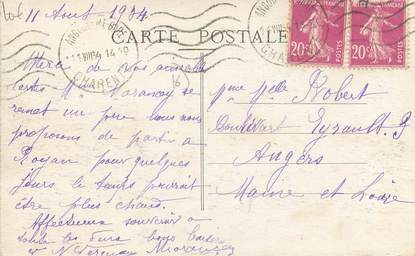 le 11 Aout 1934
CARTE POSTALE
CHAREN
20c POSTES
20c POSTES
Merci de vos aimable
cartes M Morancay se
remet un peu nous nous
proposons de partir a
Royan pour quelques
jours le temps pourrait
être plus chaud.
Affectueux souvenir a
toutes les deux bons baisers
Morancay
Mme Melle Robert
Boulevart
Angers
Maine et Loire